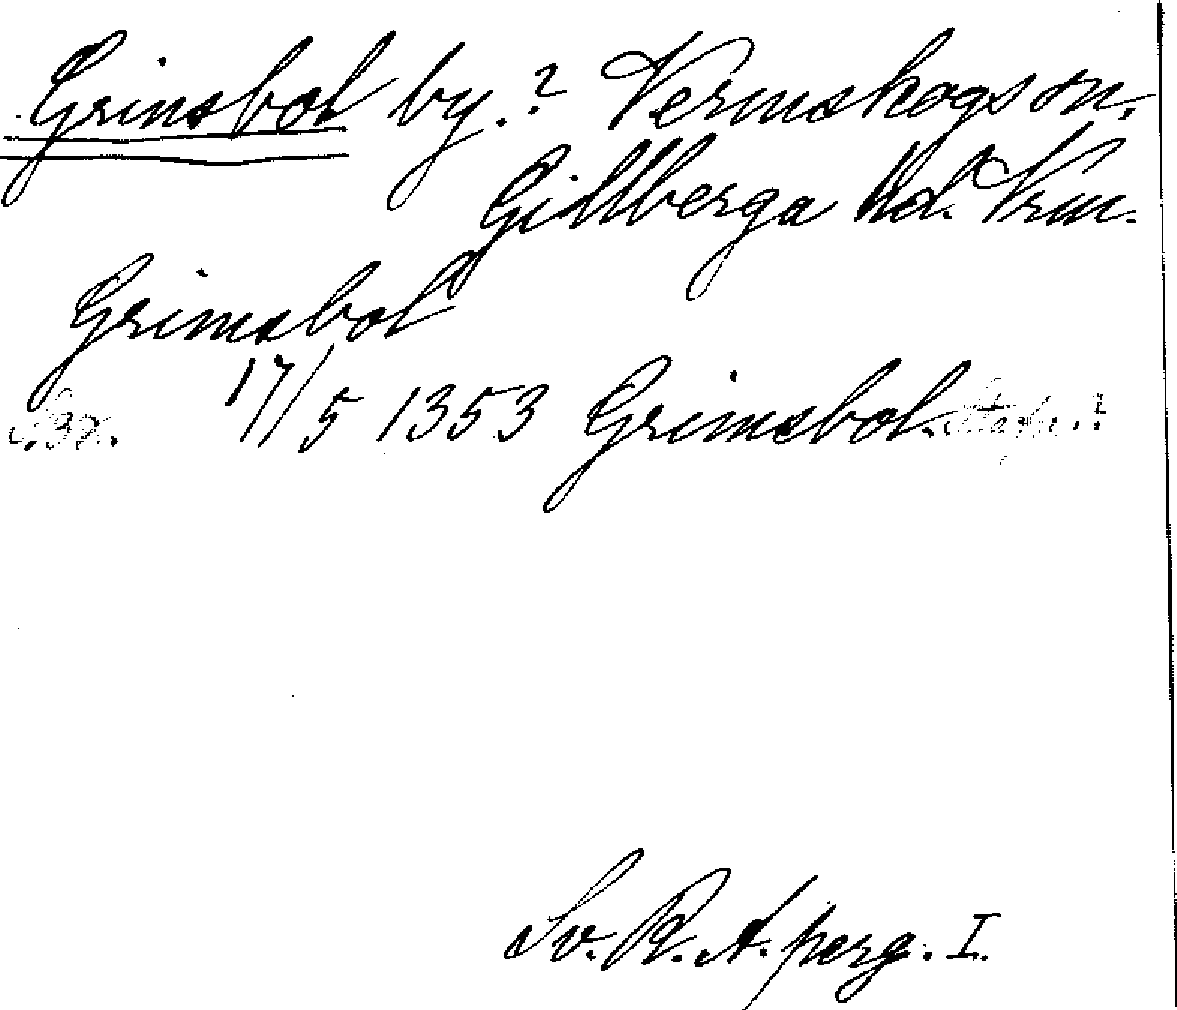 Grinsbol by.? Vermskogs sn.
Gillberga Hd. Vrm.
Grimsbol
17/5 1353 Grimsbol
Sv. R. A. perg. I.